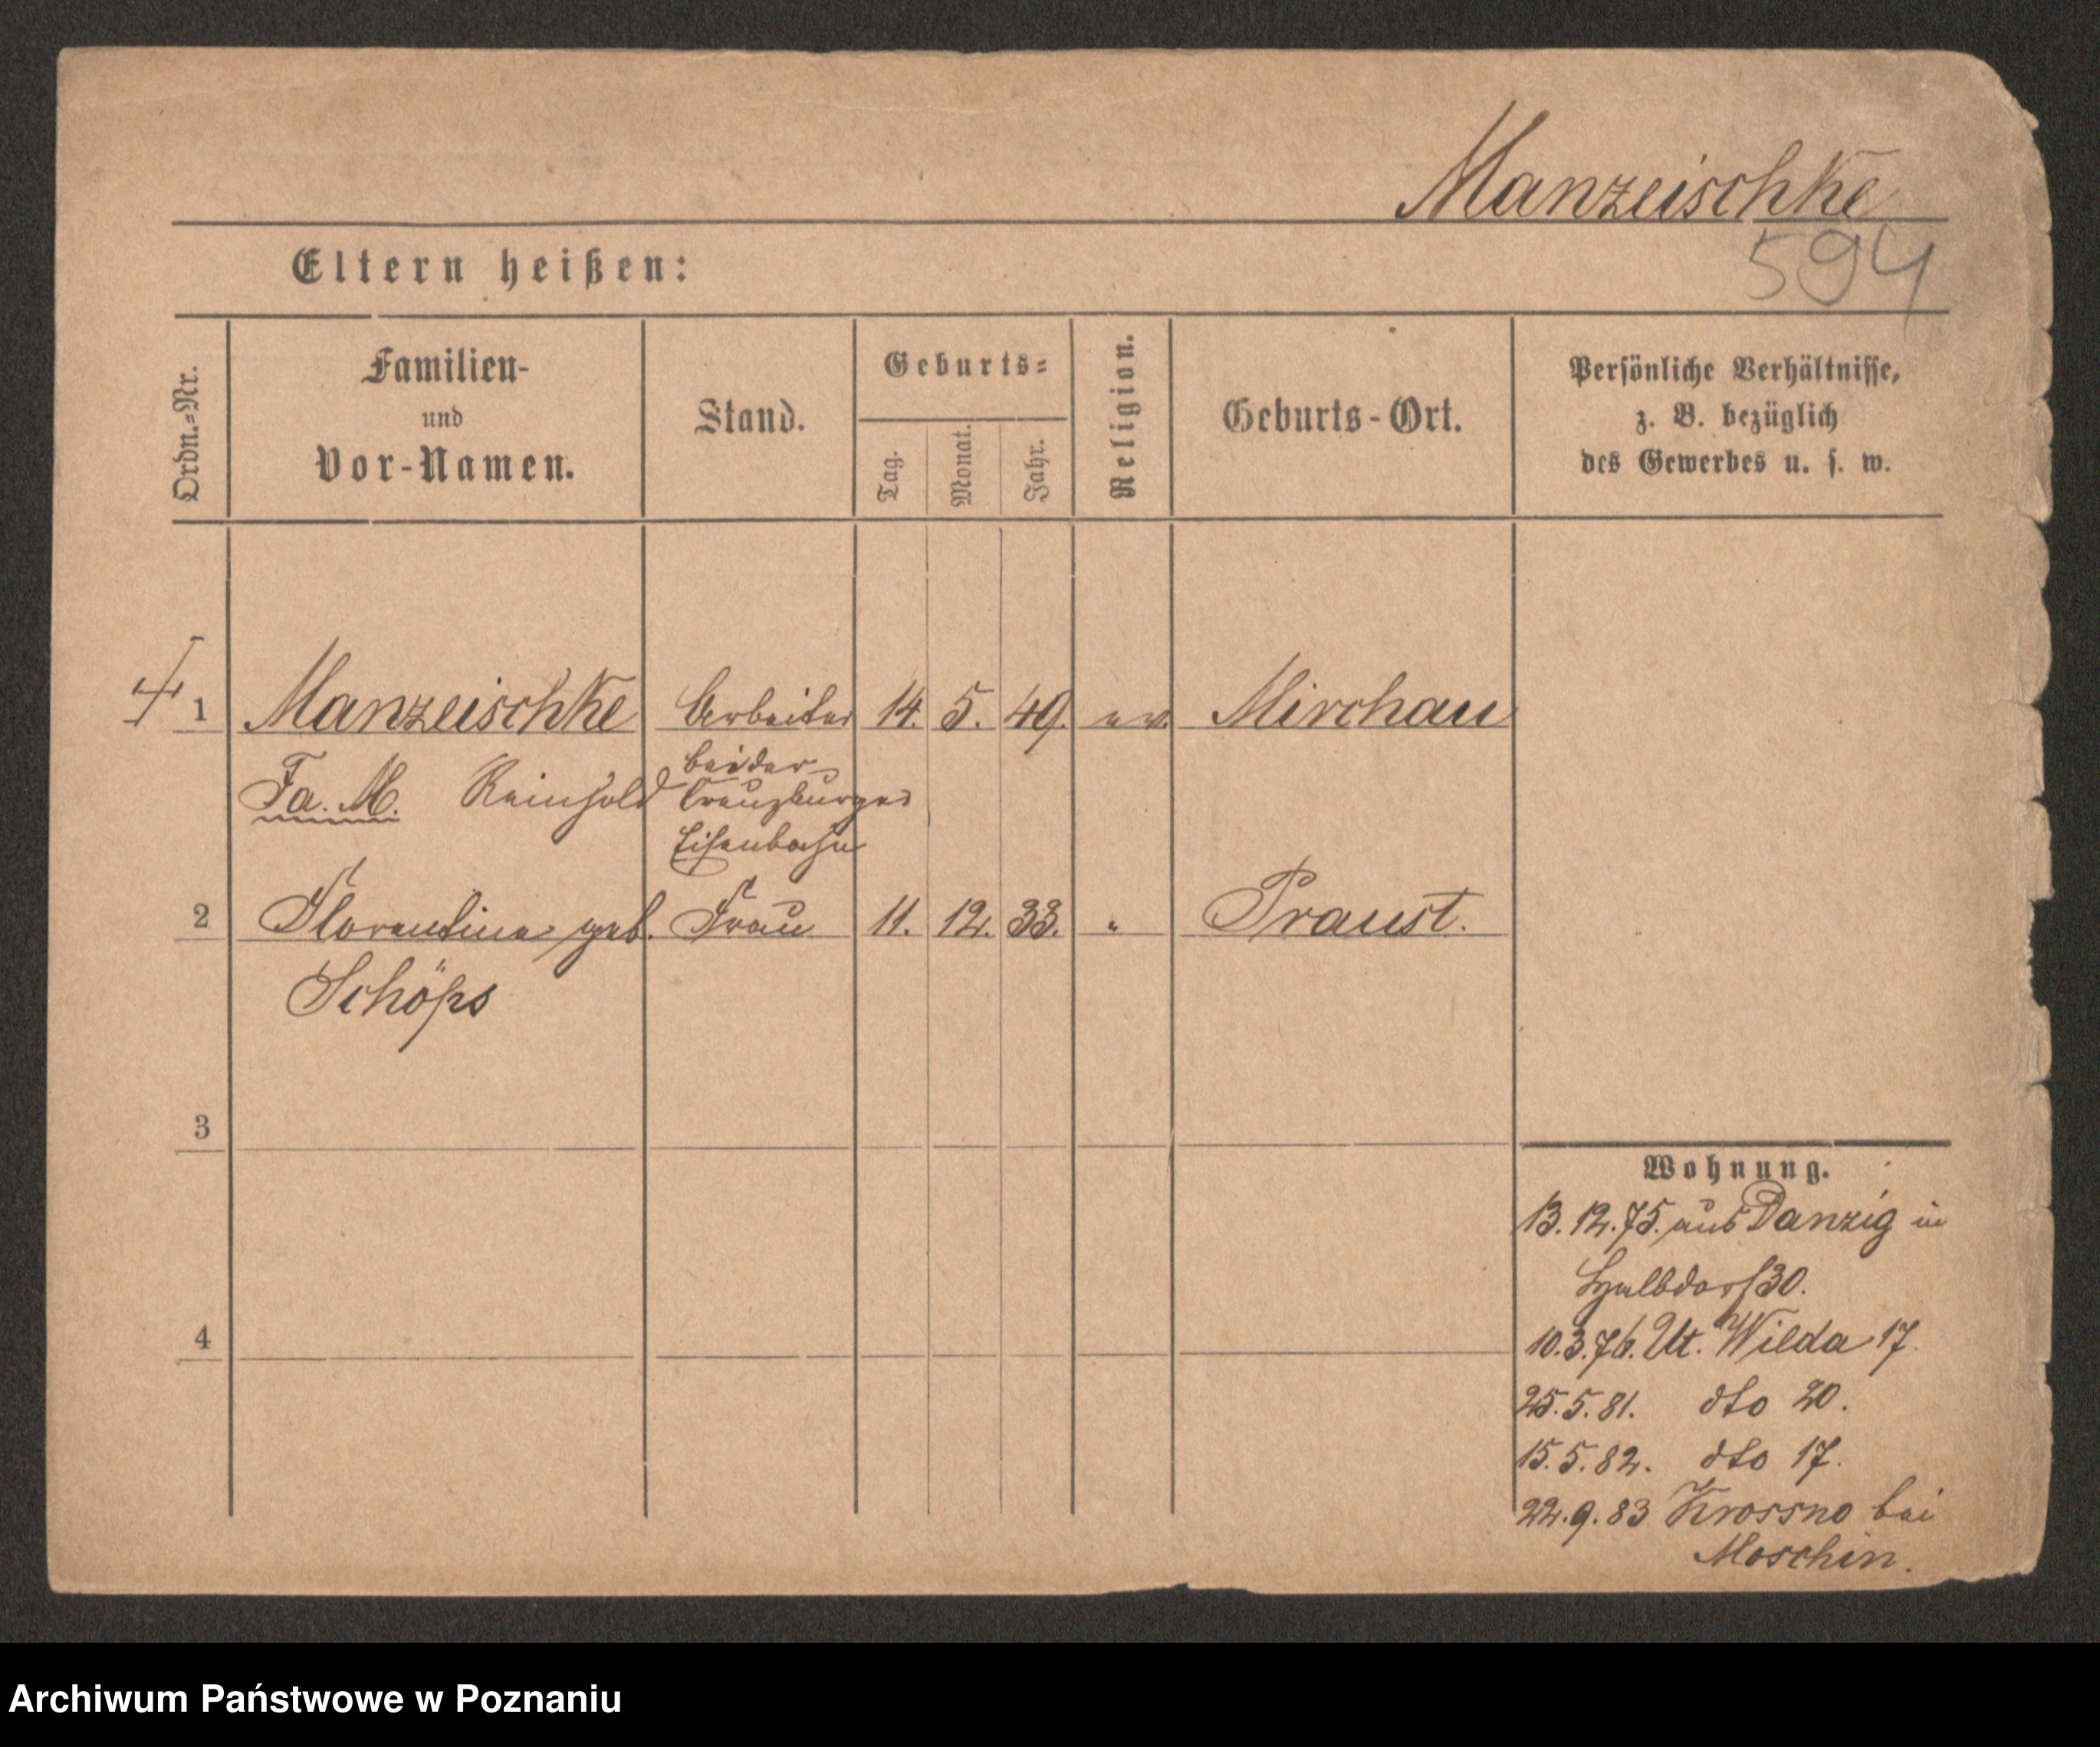 Manzeischke
594
Eltern heißen:
Ordn.-Nr.
Familien-
und
Vor-Namen.
Stand.
Geburts-
Tag.
Monat.
Jahr.
Religion.
Geburts-Ort.
Persönliche Verhältnisse,
z. B. bezüglich
des Gewerbes u. s. w.
1 Manzeischke Arbeiter 14. 5. 49. ev. Mirchau
Fa. M. Reinhold
bei der
Creuzburger
Eisenbahn
2 Florentine geb. Frau 11. 12. 33. " Praust.
Schöps
3
4
Wohnung.
13.12.75. aus Danzig in
Halbdorf 30.
10.3.76. Ut. Wilda 17.
25.5.81. dto 20.
15.5.82. dto 17.
22.9.83 Krossno bei
Moschin.
Archiwum Państwowe w Poznaniu